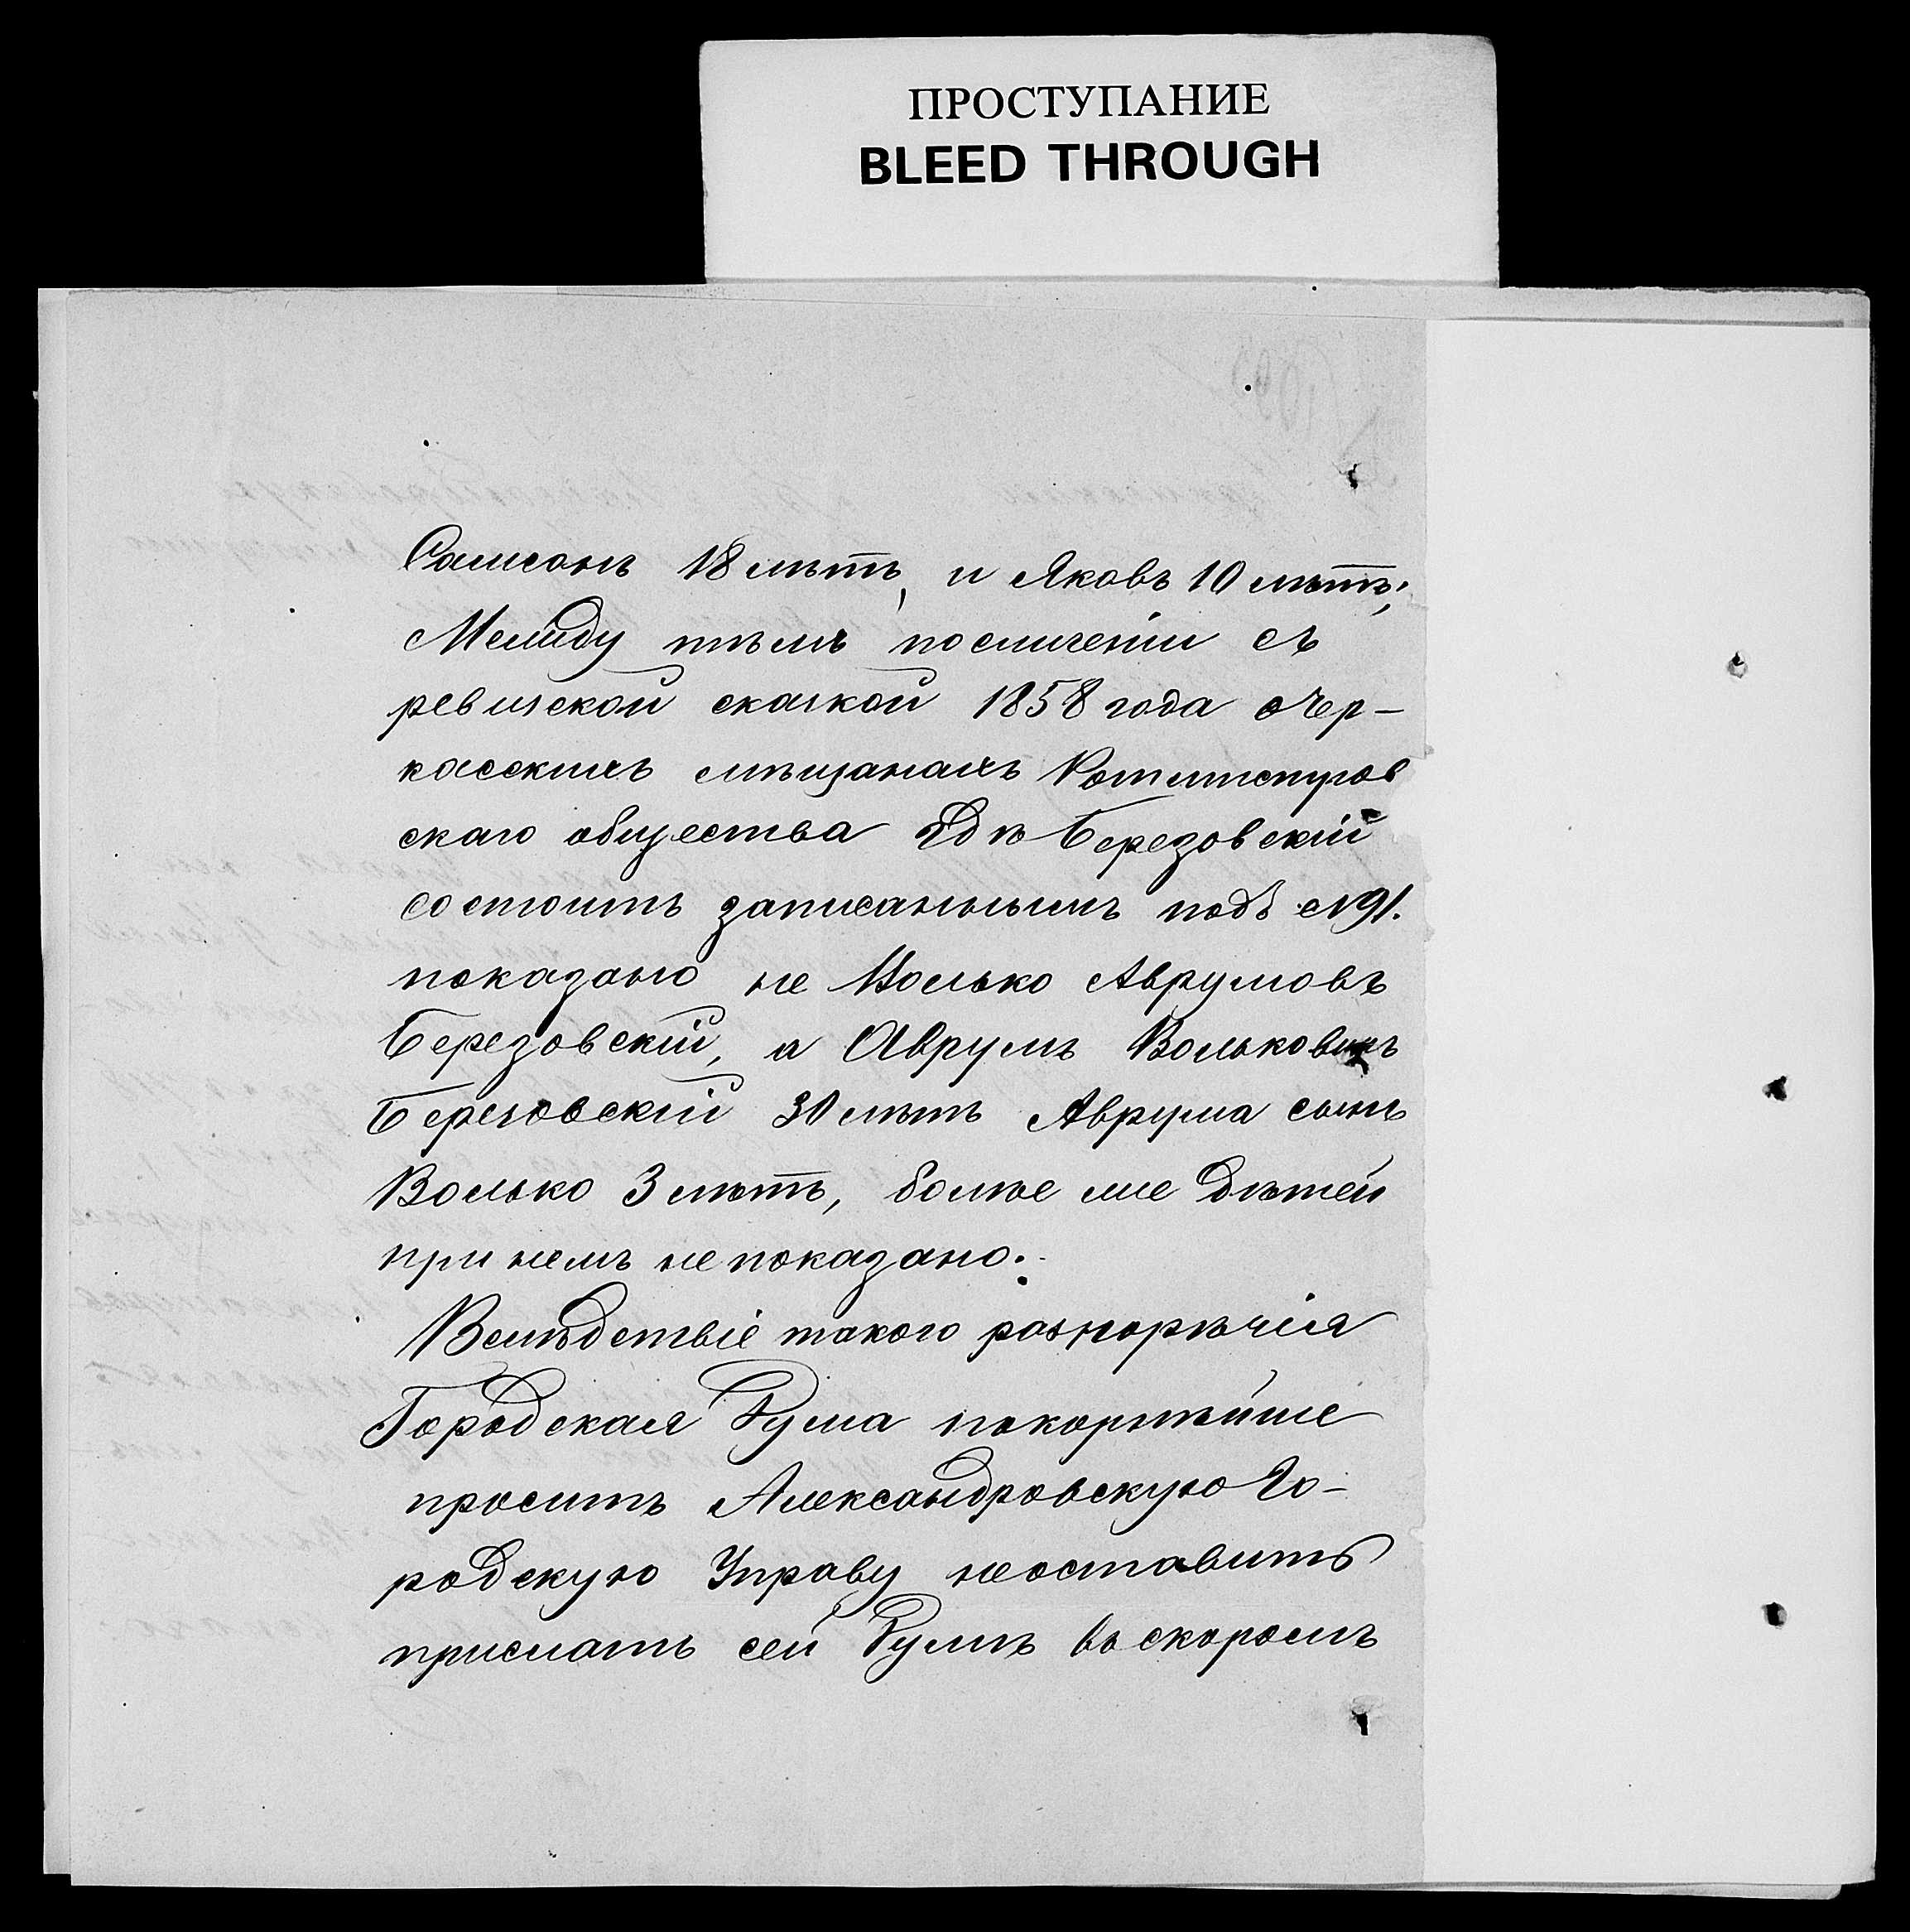 ПРОСТУПАНИЕ
BLEED THROUGH
Самсонъ 18 лѣтъ, и Яковъ 10 лѣтъ;
Между тѣмъ по сличеніи съ
ревизской сказкой 1858 года о Чер-
касскихъ мѣщанахъ Ротмистров
скаго общества гдѣ Березовскій
состоитъ записаннымъ подъ №91.
показано не Волько Аврумовъ
Березовскій, а Аврумъ Вольковичъ
Березовскій 30 лѣтъ Аврума сынъ
Волько 3 лѣтъ, болѣе же дѣтей
при немъ не показано.
Вслѣдствіе такого разнорѣчія
Городская Дума покорнѣйше
проситъ Александровскую Го-
родскую Управу неоставить
прислать сей Думѣ въ скоромъ